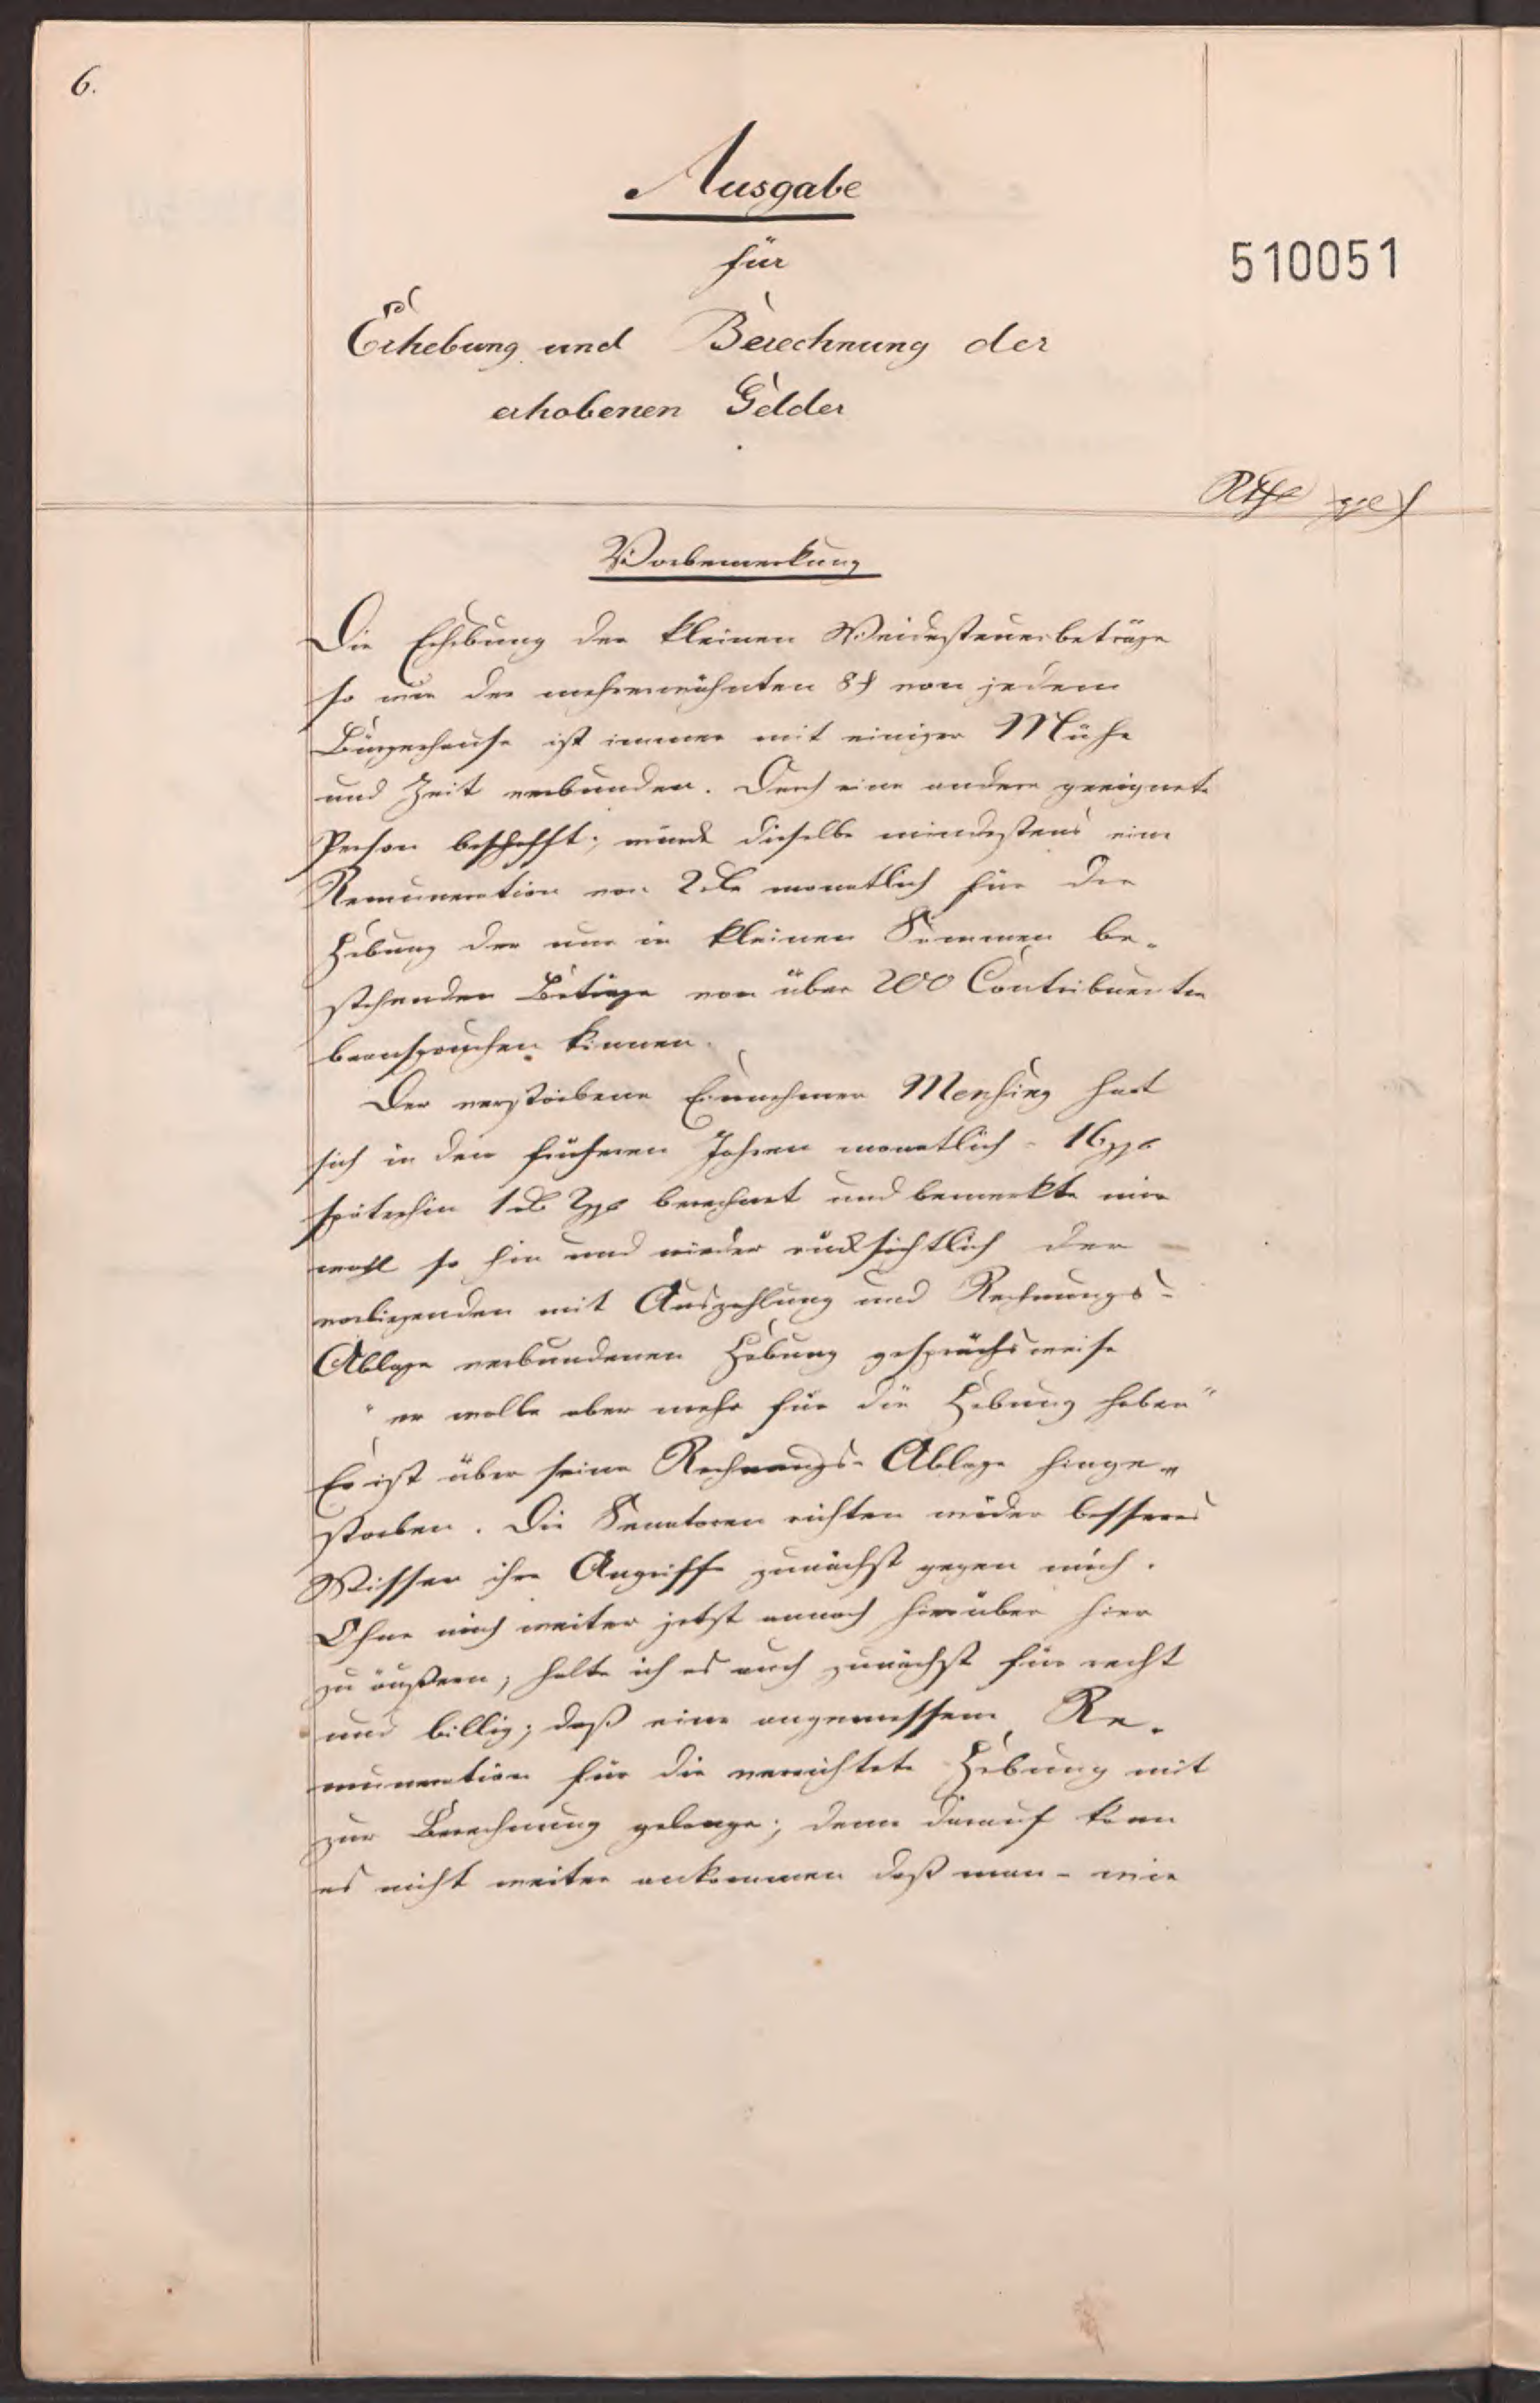 6.
Ausgabe
für
510051
Erhebung und Berechnung der
erhobenen Gelder
Rthl ggl ₰
Vorbemerkung
Die Erhebung der kleinen Weidesteuerbeträge
so wie der mehrerwähnten 8 ₰ von jedem
Bürgerhause ist immer mit einiger Mühe
und Zeit verbunden. Durch eine andere geeignete
Person beschafft; würde dieselbe mindestens eine
Remuneration von 2 rtl monatlich für die
Hebung der nur in kleinen Summen be-
stehenden Beträge von über 200 Contribuenten
beanspruchen können.
Der verstorbene Einnehmer Mensing hat
sich in den früheren Jahren monatlich - 16 ggl
späterhin 1 rtl 2 ggl berechnet und bemerkte mir
wohl so hin und wieder rücksichtlich der
vorliegenden mit Auszahlung und Rechnungs-
Ablage verbundenen Hebung gesprächsweise
"er wolle aber mehr für die Hebung haben"
Er ist über seine Rechnungs-Ablage hinge-
storben. Die Senatoren richten wieder besseres
Wissen ihre Angriffe zunächst gegen mich.
Ohne mich weiter jetzt annoch hierüber hier
zu äußern, halte ich es auch zunächst für recht
und billig; daß eine angemessene Re-
muneration für die verrichtete Hebung mit
zur Berechnung gelange; denn darauf kann
es nicht weiter ankommen daß man - wie